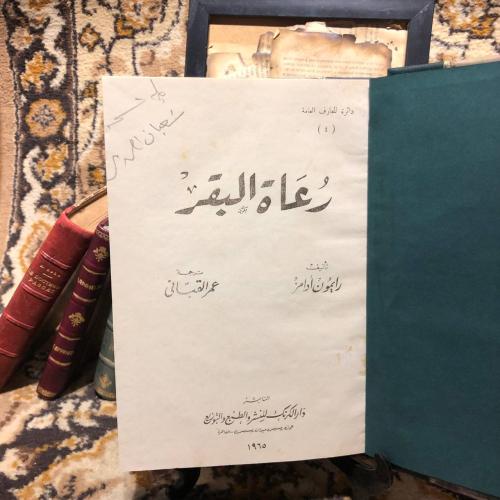 دائرة المعارف العامة
(٤)
رُعَاة البقر
تأليف
رايمون أدامز
ترجمة
عمر القبّاني
الناشر
دار الكرنك للنشر والطبع والتوزيع
١٩٦٥